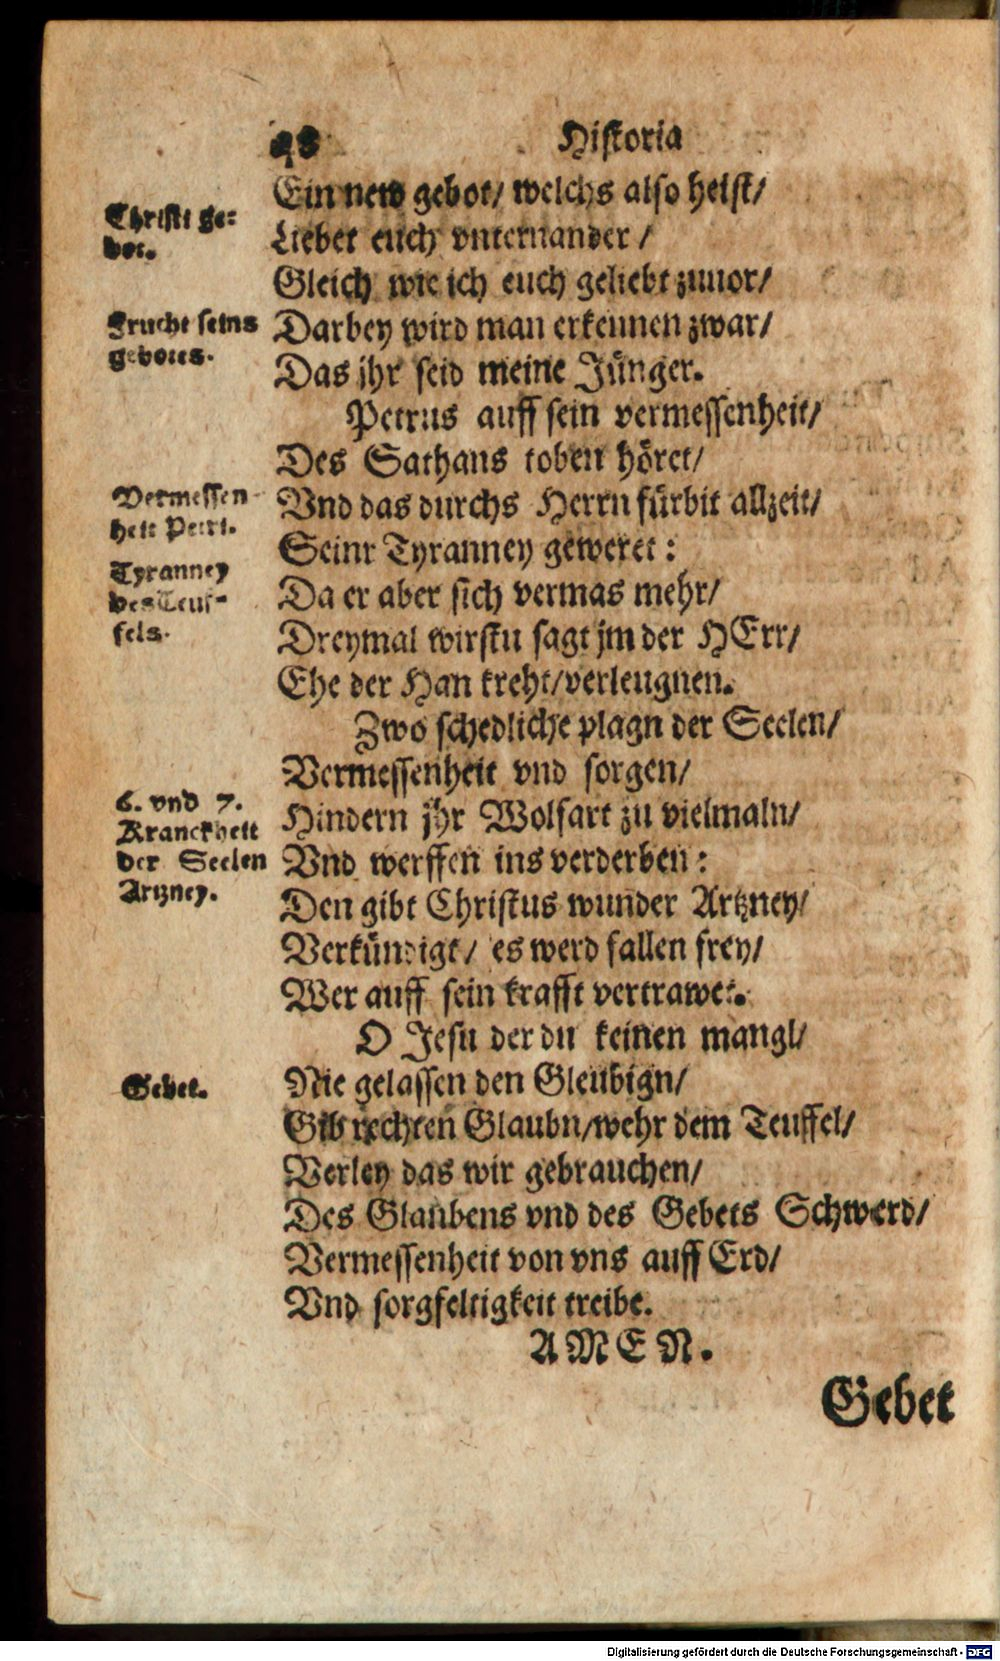 28 Historia
Ein new gebot/ welchs also heist/
Christi ge=
bot.
Liebet euch vnternander /
Gleich wie ich euch geliebt zuuor/
Frucht seins
gebotts.
Darbey wird man erkennen zwar/
Das jhr seid meine Jünger.
Petrus auff sein vermessenheit/
Des Sathans toben höret/
Vermessen
heit Petri.
Vnd das durchs Herrn fürbit allzeit/
Seinr Tyranney geweret :
Tyranney
des Teuf=
fels.
Da er aber sich vermas mehr/
Dreymal wirstu sagt jm der HErr/
Ehe der Han kreht/verleugnen.
Zwo schedliche plagn der Seelen/
Vermessenheit vnd sorgen/
6. vnd 7.
Kranckheit
der Seelen
Artzney.
Hindern jhr Wolfart zu vielmaln/
Vnd werffen ins verderben :
Den gibt Christus wunder Artzney/
Verkündigt/ es werd fallen frey/
Wer auff sein krafft vertrawet.
O Jesu der du keinen mangl/
Gebet.
Nie gelassen den Gleubign/
Gib rechten Glaubn/wehr dem Teuffel/
Verley das wir gebrauchen/
Des Glaubens vnd des Gebets Schwerd/
Vermessenheit von vns auff Erd/
Vnd sorgfeltigkeit treibe.
AMEN.
Gebet
Digitalisierung gefördert durch die Deutsche Forschungsgemeinschaft - DFG